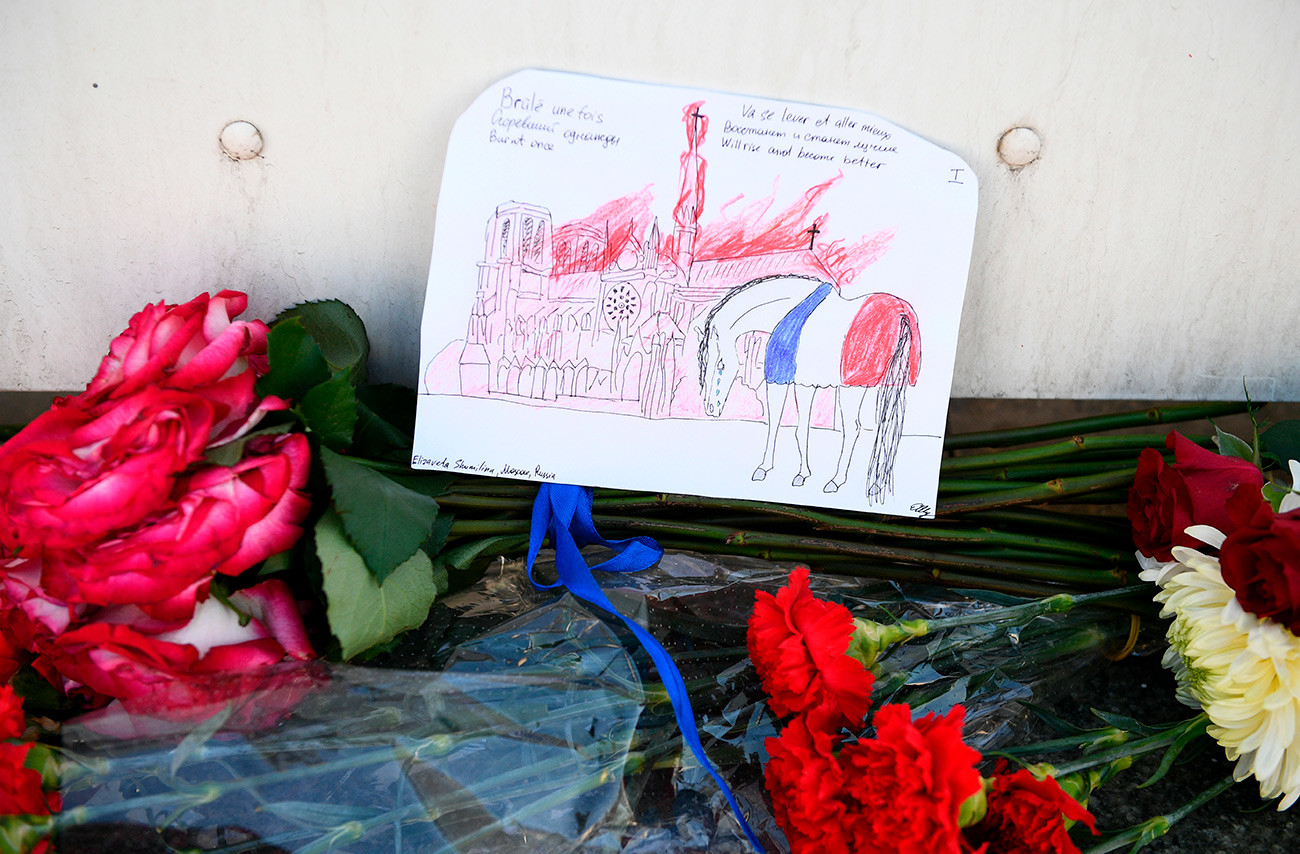 Brûlé une fois
Сгоревший однажды
Burnt once
Va se lever et aller mieux
Восстанет и станет лучше
Will rise and become better
I
Elizaveta Shumilina, Moscow, Russia